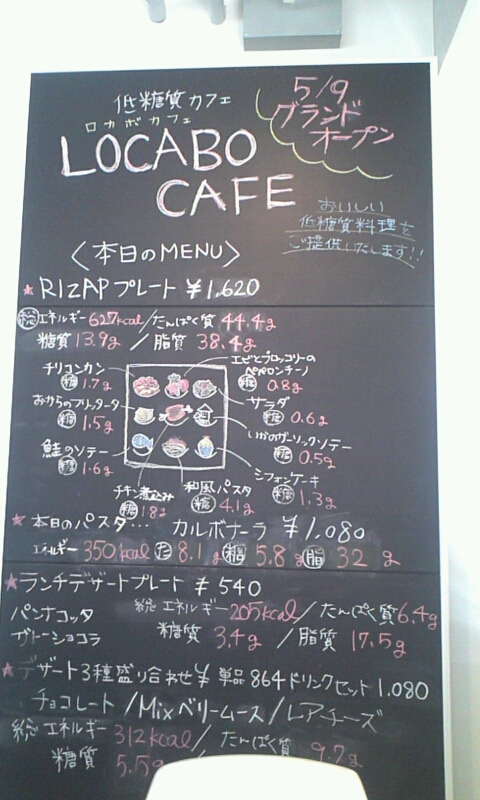 5/9
グランド
オープン
低糖質カフェ
ロカボカフェ
LOCABO
CAFE
おいしい
低糖質料理を
ご提供いたします!!
〈本日のMENU〉
★ RIZAPプレート ¥1,620
総エネルギー 627kcal/たんぱく質 44.4g
糖質 13.9g / 脂質 38.4g
チリコンカン
糖 1.7g
エビとブロッコリーの
ペペロンチーノ
糖 0.8g
おからのフリッタータ
糖 1.5g
サラダ
糖 0.6g
いかのガーリックソテー
糖 0.5g
鮭のソテー
糖 1.6g
シフォンケーキ
糖 1.3g
チキン煮込み
糖 1.8g
和風パスタ
糖 4.1g
★ 本日のパスタ… カルボナーラ ¥1,080
エネルギー 350kcal た 8.1g 糖 5.8g 脂 32g
★ランチデザートプレート ¥540
パンナコッタ
ガトーショコラ
総エネルギー 205kcal/たんぱく質6.4g
糖質 3.4g / 脂質 17.5g
★デザート3種盛り合わせ¥ 単品864ドリンクセット1.080
チョコレート/Mixベリームース/レアチーズ
総エネルギー 312kcal/たんぱく質 9.7g
糖質 5.5g